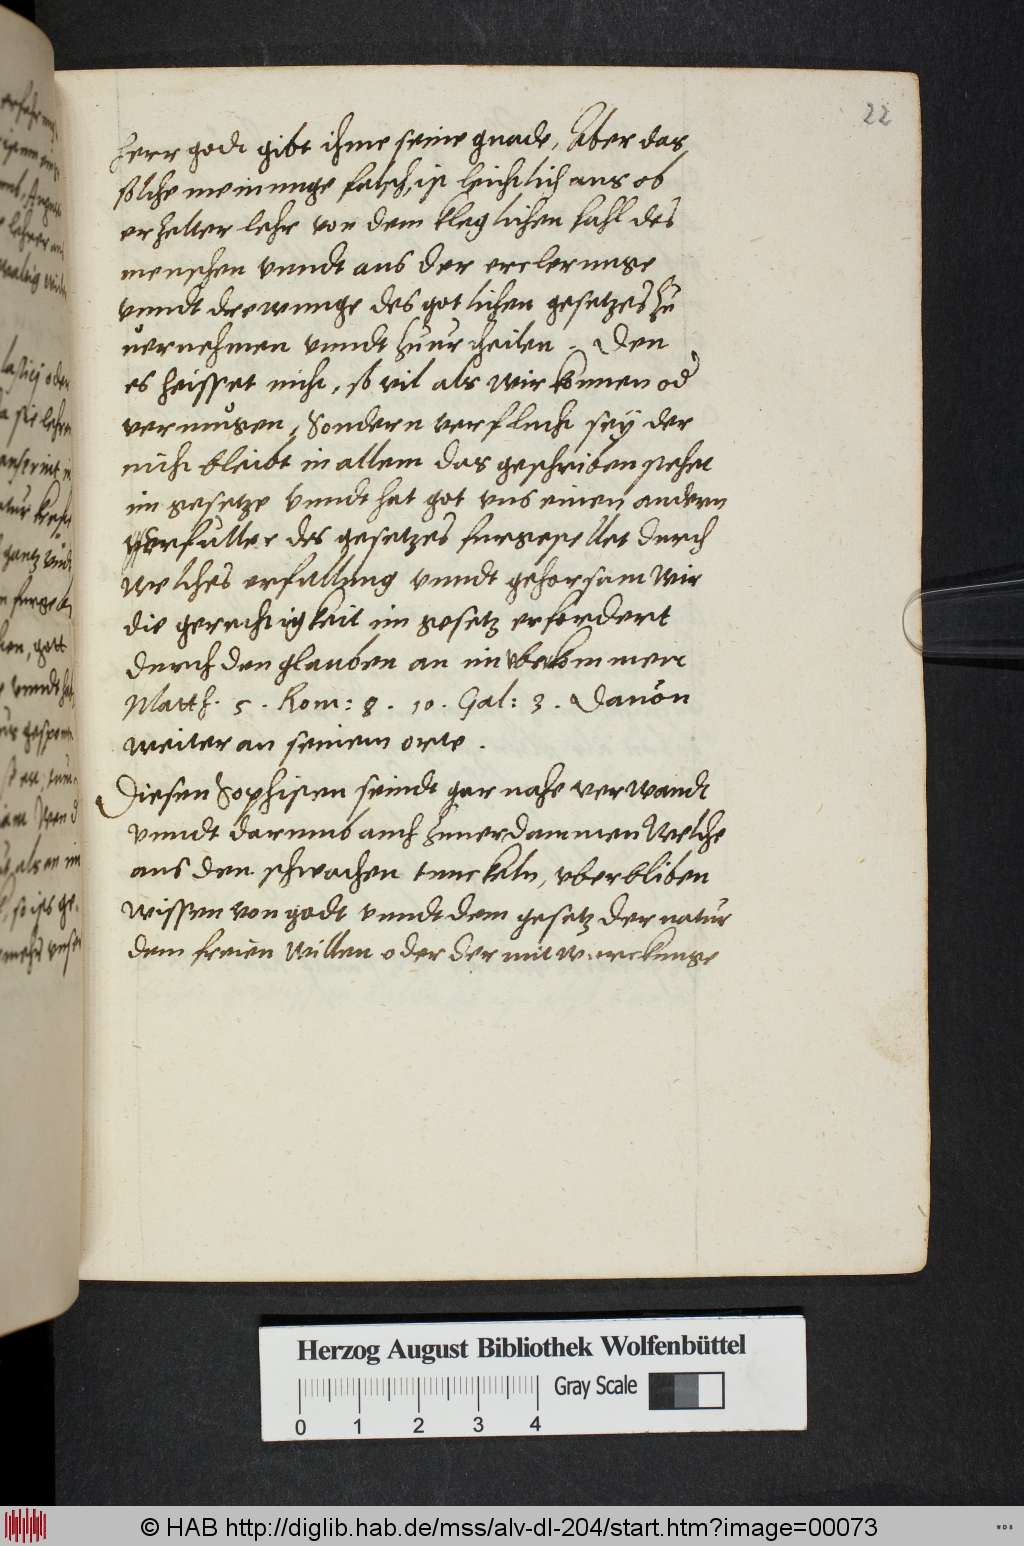 22
herr godt gibt ihme seine gnade, Aber das
solche meinunge falsch, ist leichtlich aus ob
erzelter lehr von dem kleglichen fahl des
menschen vnndt aus der erclerunge
vnndt drewunge des gotlichen gesetzes zu
uernehmen vnndt zuurtheilen. Den
es heisset nicht, so vil als wir können od
vermügen, Sondern verflucht sey der
nicht bleibt in allem das geschriben stehet
im gesetze vnndt hat got vns einen andern
erfuller des gesetzes furgestellet durch
welches erfullung vnndt gehorsam wir
die gerechtigkeit im gesetz erfordert
durch den glauben an in bekommen
Matth. 5. Rom: 8. 10. Gal: 3. Dauon
weiter an seinem orte.
Diesen Sophisten seindt gar nahe verwandt
vnndt darumb auch zuuerdammen Welche
aus den schwachen tunckeln, vberbliben
wissen von godt vnndt dem gesetz der natur
dem freien willen oder der mitwurckunge
Herzog August Bibliothek Wolfenbüttel
0 1 2 3 4
Gray Scale
© HAB http://diglib.hab.de/mss/alv-dl-204/start.htm?image=00073